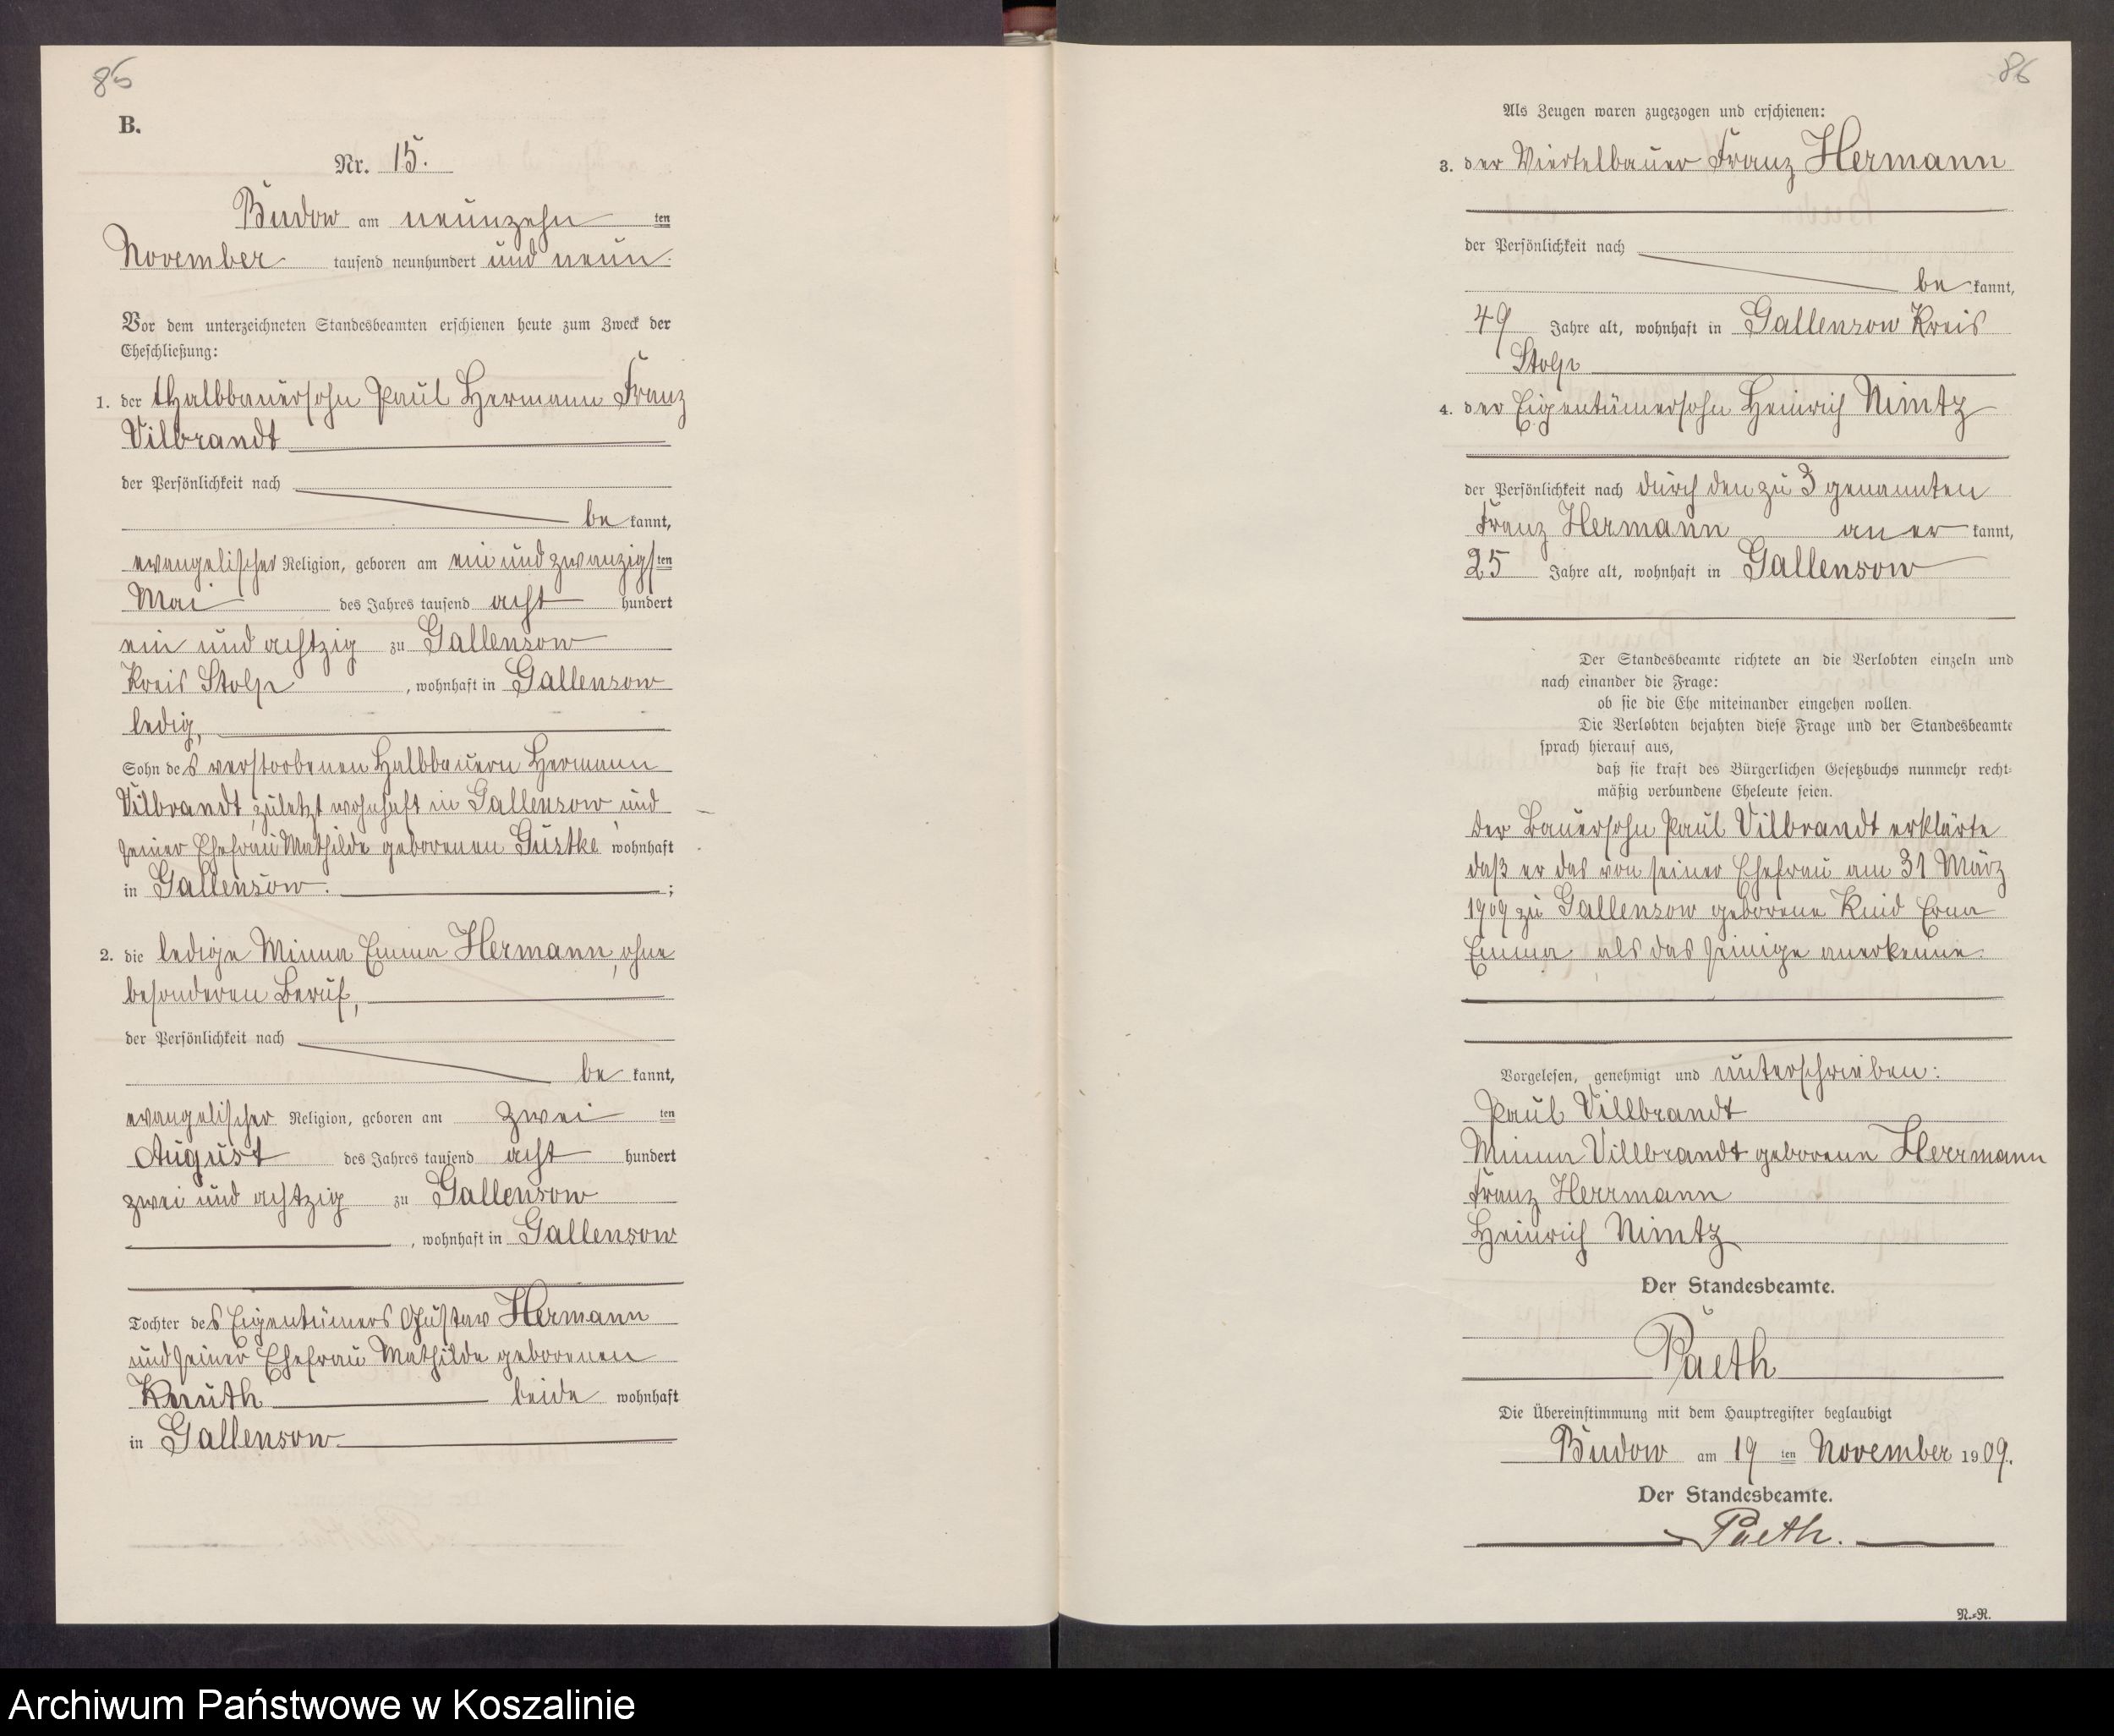 85
B.
Nr. 15.
Budow am neunzehn ten
November tausend neunhundert und neun.
Vor dem unterzeichneten Standesbeamten erschienen heute zum Zweck der
Eheschließung:
1. der Halbbauersohn Paul Hermann Franz
Vilbrandt
der Persönlichkeit nach
be kannt,
evangelischer Religion, geboren am ein und zwanzigsten
Mai des Jahres tausend acht hundert
ein und achtzig zu Gallensow
Kreis Stolp, wohnhaft in Gallensow
ledig,
Sohn des verstorbenen Halbbauern Hermann
Vilbrandt, zuletzt wohnhaft in Gallensow und
seiner Ehefrau Mathilde geborenen Gustke wohnhaft
in Gallensow. ;
2. die ledige Minna Emma Hermann, ohne
besonderen Beruf,
der Persönlichkeit nach
be kannt,
evangelischer Religion, geboren am zwei ten
August des Jahres tausend acht hundert
zwei und achtzig zu Gallensow
, wohnhaft in Gallensow
Tochter des Eigentümers Gustav Hermann
und seiner Ehefrau Mathilde geborenen
Knuth beide wohnhaft
in Gallensow
86
Als Zeugen waren zugezogen und erschienen:
3. der Viertelbauer Franz Hermann
der Persönlichkeit nach
be kannt,
49 Jahre alt, wohnhaft in Gallensow Kreis
Stolp
4. der Eigentümersohn Heinrich Nimtz
der Persönlichkeit nach durch den zu 3 genannten
Franz Hermann aner kannt,
25 Jahre alt, wohnhaft in Gallensow
Der Standesbeamte richtete an die Verlobten einzeln und
nach einander die Frage:
ob sie die Ehe miteinander eingehen wollen.
Die Verlobten bejahten diese Frage und der Standesbeamte
sprach hierauf aus,
daß sie kraft des Bürgerlichen Gesetzbuchs nunmehr recht-
mäßig verbundene Eheleute seien.
Der Bauersohn Paul Vilbrandt erklärte
daß er das von seiner Ehefrau am 31 März
1909 zu Gallensow geborene Kind Erna
Emma als das seinige anerkenne.
Vorgelesen, genehmigt und unterschrieben:
Paul Villbrandt
Minna Villbrandt geborene Herrmann
Franz Herrmann
Heinrich Nimtz
Der Standesbeamte.
Paeth
Die Übereinstimmung mit dem Hauptregister beglaubigt
Budow am 19 ten November 1909.
Der Standesbeamte.
Paeth.
N.-R.
Archiwum Państwowe w Koszalinie